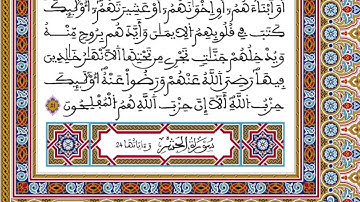 أَوَ اَبْنَآءَهُمُۥٓ أَوِ اِخْوَٰنَهُمُۥٓ أَوْ عَشِيرَتَهُمُۥٓ أُوْلَٰٓئِكَ
كَتَبَ فِے قُلُوبِهِمُ اُ۬لِايمَٰنَ وَأَيَّدَهُم بِرُوحٖ مِّنْهُ
وَيُدْخِلُهُمْ جَنَّٰتٖ تَجْرِے مِن تَحْتِهَا اَ۬لَانْهَٰرُ خَٰلِدِينَ
فِيهَا رَضِيَ اَ۬للَّهُ عَنْهُمْ وَرَضُواْ عَنْهُ أُوْلَٰٓئِكَ
حِزْبُ اُ۬للَّهِ أَلَآ إِنَّ حِزْبَ اَ۬للَّهِ هُمُ اُ۬لْمُفْلِحُونَ
سُورَةُ الْحَشْرِ وَءَايَاتُهَا 24